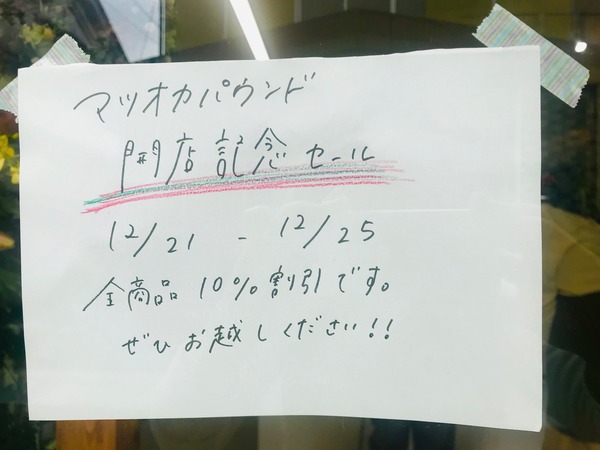 マツオカパウンド
開店記念セール
12/21 - 12/25
全商品10%割引です。
ぜひお越しください!!